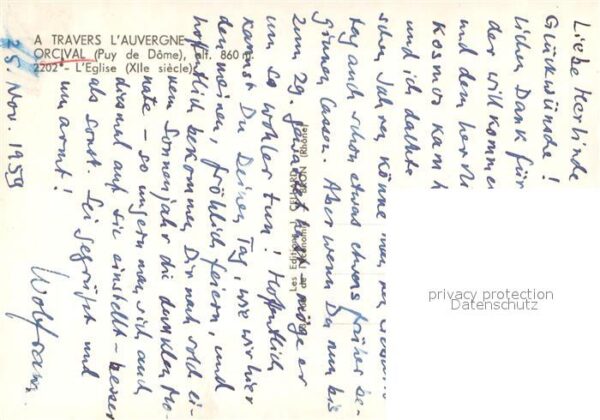 A TRAVERS L'AUVERGNE
ORCIVAL (Puy de Dôme), alt. 860 m.
2202 - L'Eglise (XIIe siècle)
Les Editions CELLARD
BRON (Rhône)
25. Nov. 1959
Liebe Herlinde
Glückwünsche!
lichen Dank für
der willkomme
und dem herrli
Kosmos kam h
und ich dachte
schen Jahren könne man
tag auch schon etwas früher be-
ginnen lassen. Aber wenn Du nun bis
zum 29. gewartet hast, möge er
um so wohler tun! Hoffentlich
kannst Du Deinen Tag, wie wir hier
den meinen, fröhlich feiern, und
hoffentlich bekommen Dir nach solch ei-
nem Sonnenjahr die dunklen Mo-
nate - so ungern man sich auch
diesmal auf sie einstellt - besser
als sonst. Sei gegrüßt und
umarmt!
Wolfram
privacy protection
Datenschutz